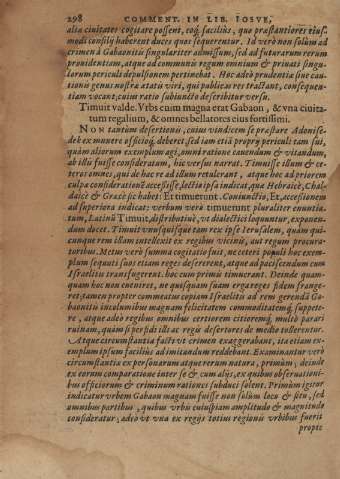 298 COMMENT. IN LIB. IOSVE,
alia ciuitates cogitare possent, eoq́; facilius, quo præstantiores eius-
modi consilÿ haberent duces quos sequerentur. Id verò non solùm ad
crimen à Gabaonitis singulariter admissum, sed ad futurarum rerum
prouidentiam, atque ad communis regum omnium & priuati singu-
larum periculi depulsionem pertinebat. Hoc adeò prudentiæ siue cau-
tionis genus nostra ætati viri, qui publicas res tractant, consequen-
tiam vocant; cuius ratio subiuncto describitur versu.
Timuit valde. Vrbs enim magna erat Gabaon, & vna ciuita
tum regalium, & omnes bellatores eius fortissimi.
NON tantùm desertionis, cuius vindicem se præstare Adonise-
dek ex munere officióq; deberet, sed iam etiã proprÿ periculi tam sui,
quàm aliorum exemplum agi, omni ratione cauendum & vitandum,
ab illis fuisse consideratum, hic versus narrat. Timuisse illum & ce-
teros omnes, qui de hac re ad illum retulerant, atque hoc ad priorem
culpæ considerationẽ accessisse, lectio ipsa indicat, quæ Hebraicè, Chal-
daicè & Græcè sic habet: Et timuerunt. Coniunctio, Et, accessionem
ad superiora indicat: verbum verò timuerunt pluraliter enuntia-
tum, Latinũ Timuit, distributiuè, vt dialectici loquuntur, exponen-
dum docet. Timuit vnusquisque tam rex ipse Ierusalem, quàm qui-
cunque rem illam intellexit ex regibus vicinis, aut regum procura-
toribus. Meus verò summa cogitatio fuit, ne ceteri populi hoc exem-
plum sequuti suos etiam reges desererent, atque ad paciscendum cum
Israëlitis transfugerent. hoc cum primis timuerant. Deinde quam-
quam hoc non eueniret, ne quisquam suam erga reges fidem frange-
ret; tamen propter commeatus copiam Israëlitis ad rem gerendã Gaba-
onitis incolumibus magnam felicitatem commoditatemq́; suppete-
re, atque adeò regibus omnibus certiorem citioremq́; multò parari
ruinam, quàm si perfidi illi ac regÿ desertores de medio tollerentur.
Atque circumstantia facti vt crimen exaggerabant, ita etiam ex-
emplum ipsum facilius ad imitandum reddebant. Examinantur verò
circumstantiæ ex personarum atque rerum natura, primùm, deinde
ex eorum comparatione inter se & cum alÿs, ex quibus obseruationi-
bus officiorum & criminum rationes subduci solent. Primùm igitur
indicatur vrbem Gabaon magnam fuisse non solùm loco & situ, sed
omnibus partibus, quibus vrbis cuiuspiam amplitudo & magnitudo
consideratur; adeò vt vna ex regÿs totius regionis vrbibus fuerit
propte